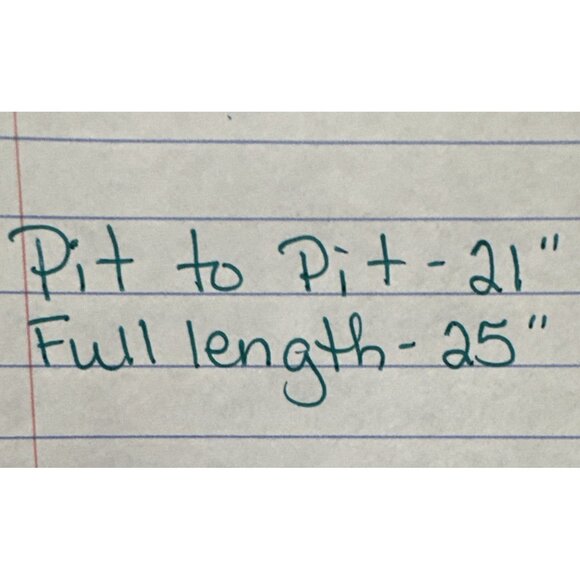 Pit to Pit - 21"
Full length - 25"